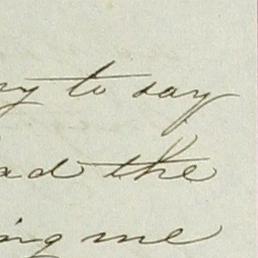 ry to say
ad the
ing me